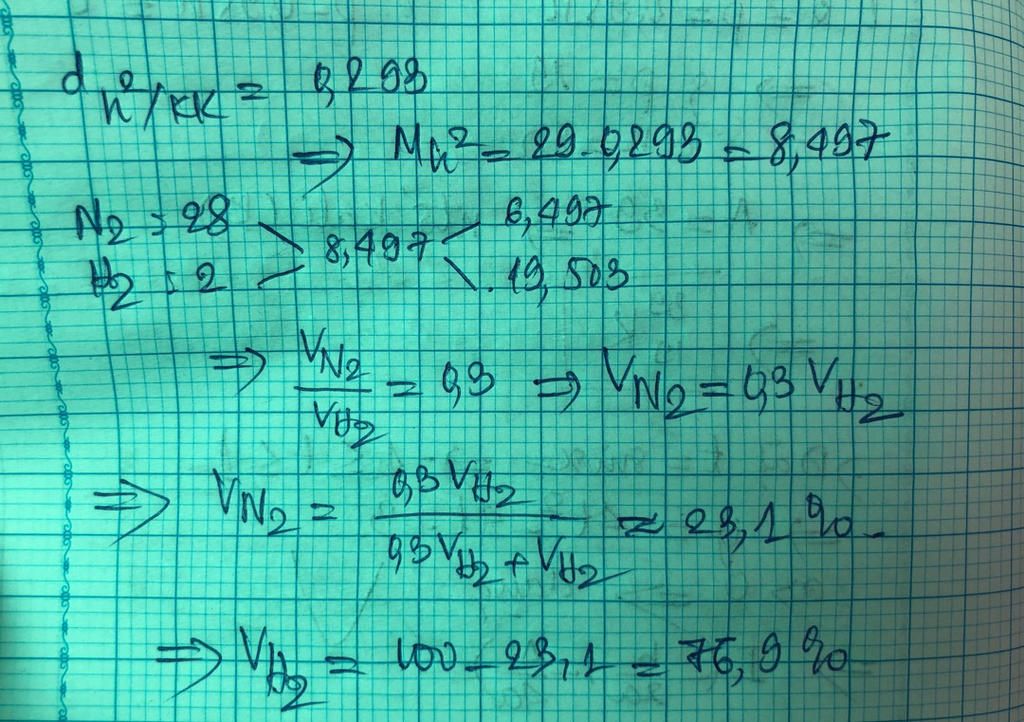 d h²/KK = 0,293
⇒ Mh² = 29.0,293 = 8,497
N₂ : 28 6,497
8,497
H₂ : 2 19,503
⇒ V_N₂/V_H₂ = 0,3 ⇒ V_N₂ = 0,3 V_H₂
⇒ V_N₂ = 0,3 V_H₂/(0,3 V_H₂ + V_H₂) = 23,1 %.
⇒ V_H₂ = 100 - 23,1 = 76,9 %